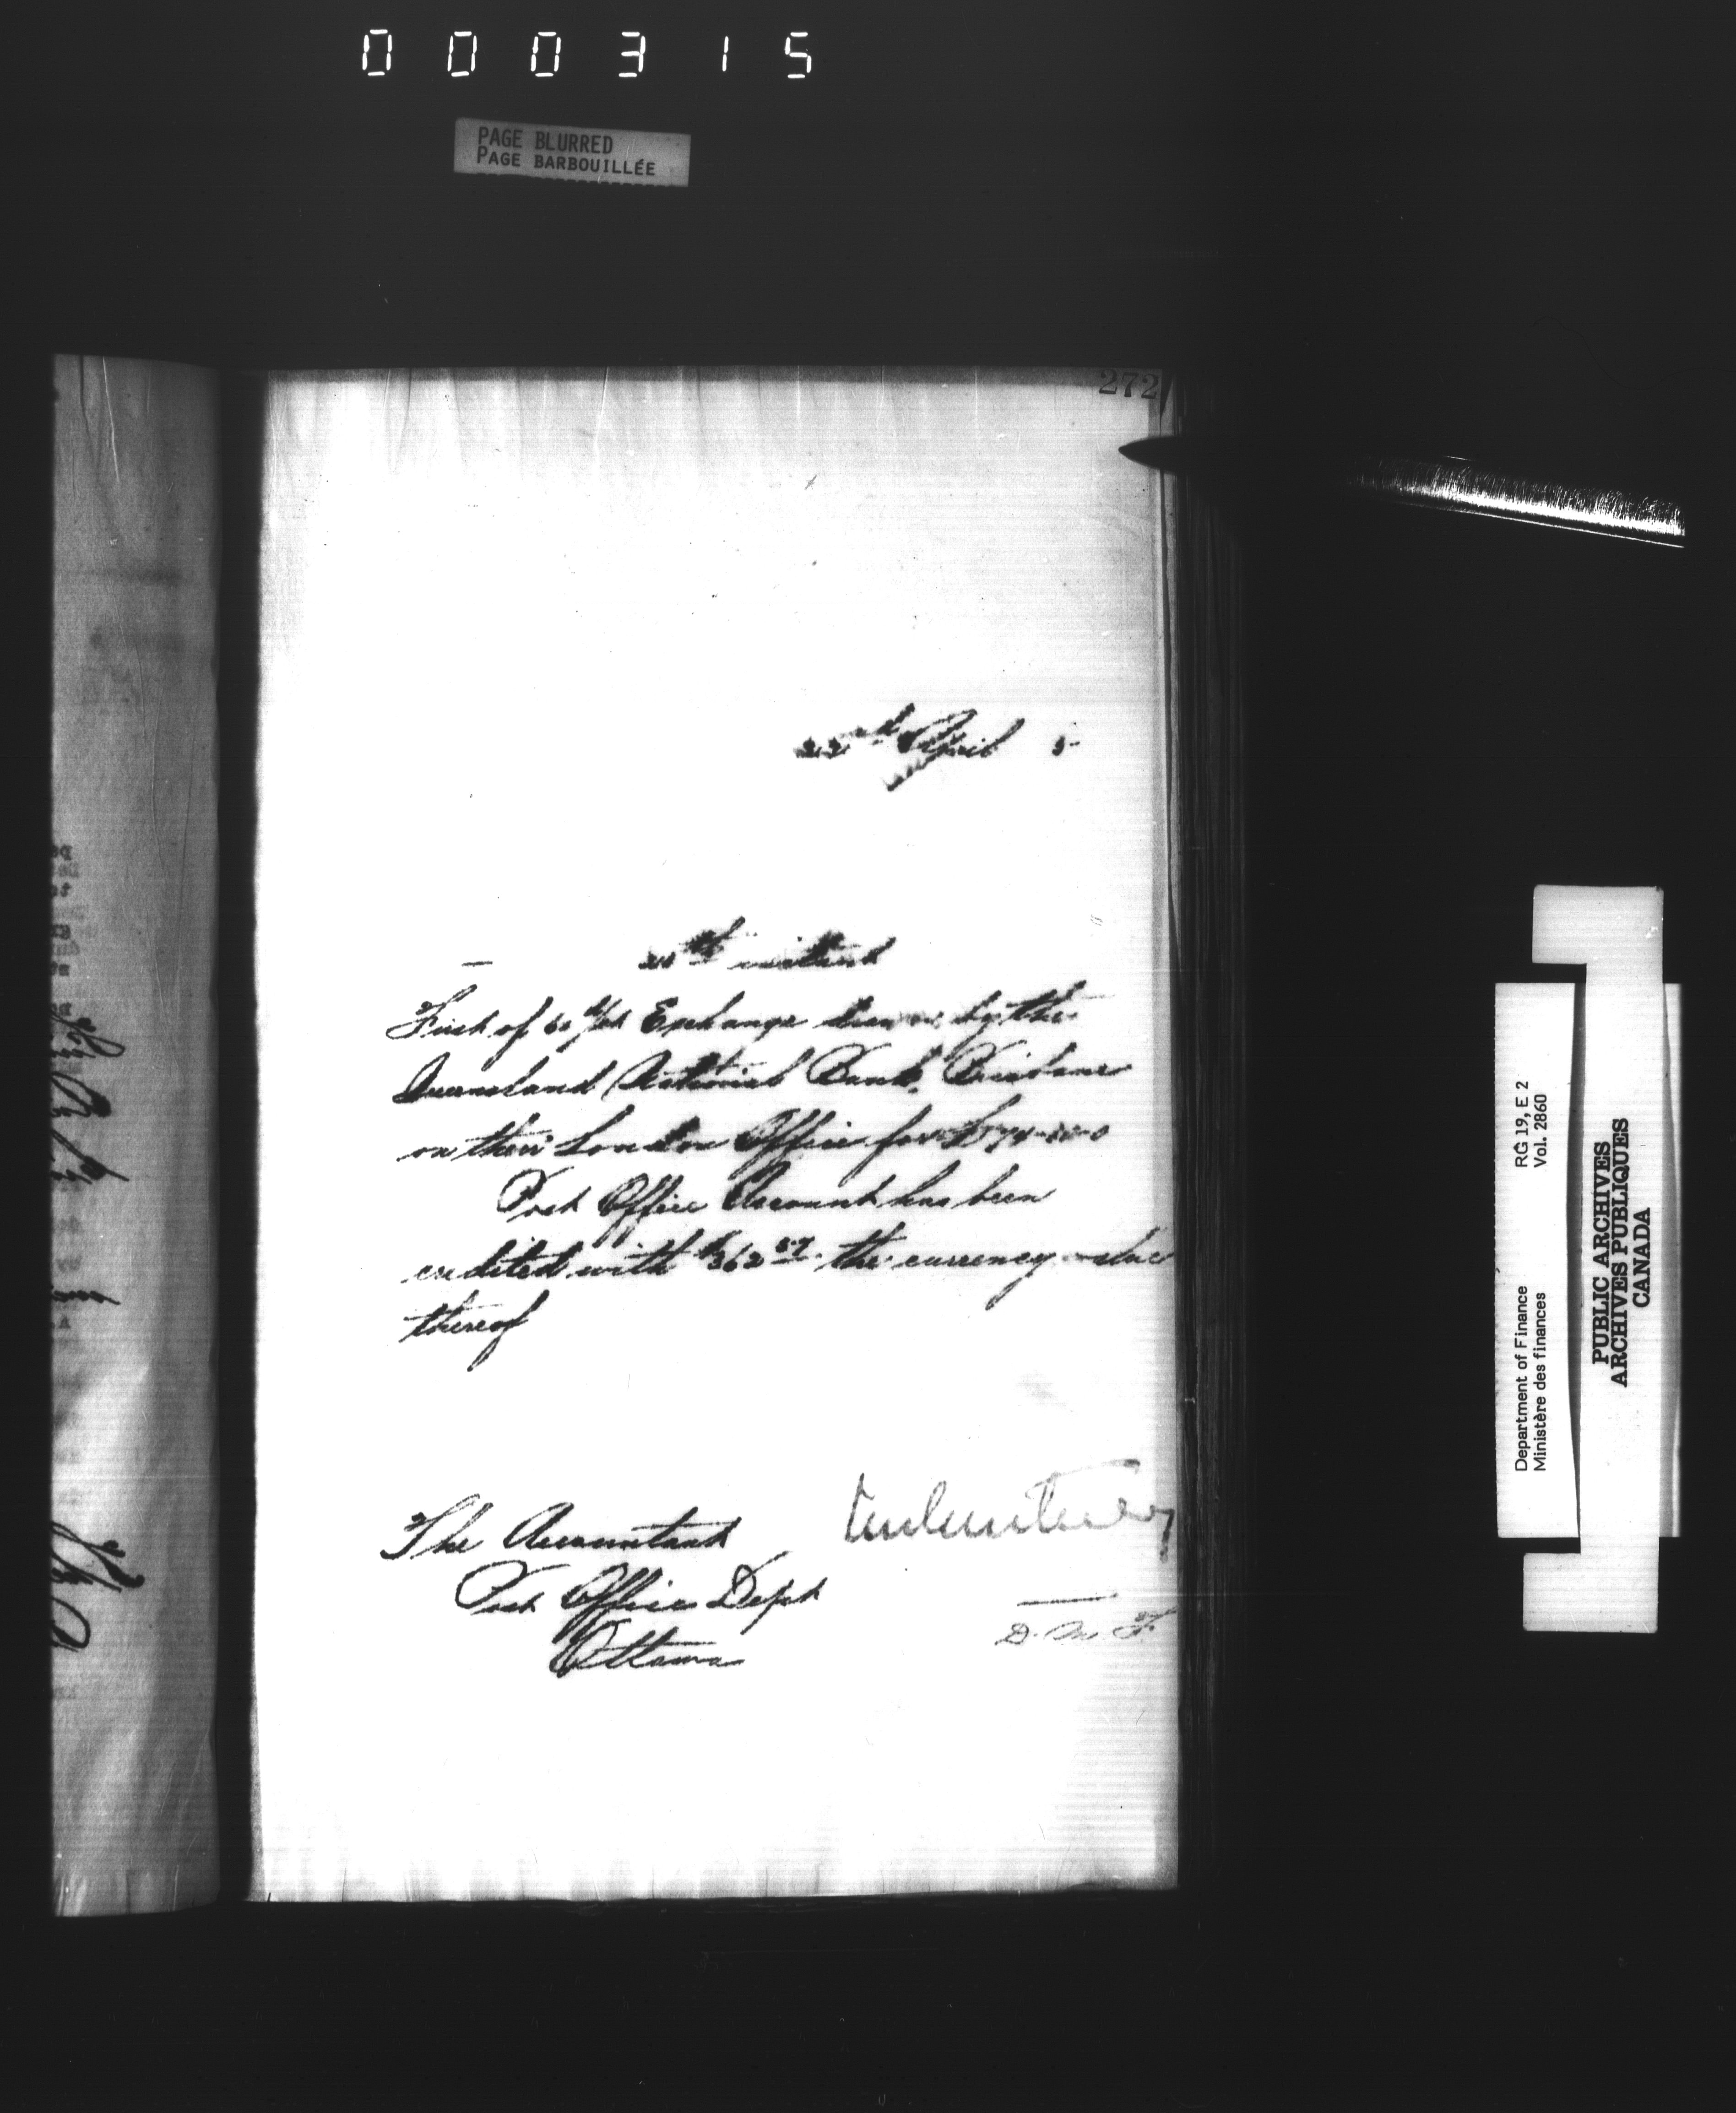 000315
PAGE BLURRED
PAGE BARBOUILLÉE
272
22nd April 5
20th instant
First of 60 d/st Exchange drawn by the
Queensland National Bank, Brisbane
on their London Office for
Post Office Account has been
credited with $362 57 the currency value
thereof
The Accountant
Post Office Dept
Ottawa
D. M. F.
RG 19, E 2
Vol. 2860
Department of Finance
Ministère des finances
PUBLIC ARCHIVES
ARCHIVES PUBLIQUES
CANADA